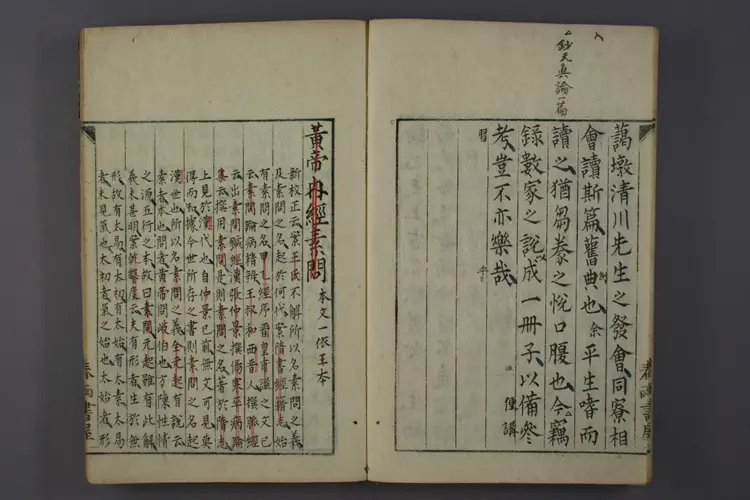 鈔天真論一篇
藹墩清川先生之發會同寮相
會讀斯篇舊典也余平生嗜而
例
讀之猶芻豢之悅口腹也今竊
錄數家之說以成一冊子以備參
便講
考豈不亦樂哉
習
黃帝內經素問
本文一依王本
新校正云案王氏不解所以名素問之義
及素問之名起於何代案隋書經籍志始
有素問之名甲乙經序晉皇甫謐之文已
云素問論病精辨王叔和西晉人撰脈經
云出素問鍼經漢張仲景撰傷寒卒病論
集云撰用素問是則素問之名著於隋志
上見於漢代也自仲景已前無文可見莫
得而知據今世所存之書則素問之名起
漢世也所以名素問之義全元起有說云
素者本也問者黃帝問岐伯也方陳性情
之源五行之本故曰素問元起雖有此解
義未甚明案乾鑿度云夫有形者生於無
形故有太易有太初有太始有太素太易
者未見氣也太初者氣之始也太始者形